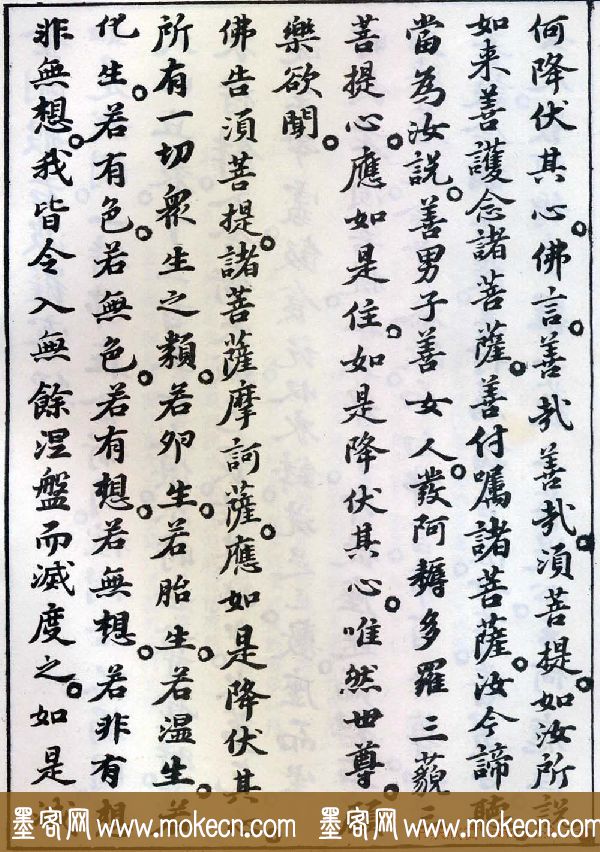 何降伏其心。佛言。善哉善哉。須菩提。如汝所說
如来善護念諸菩薩。善付嘱諸菩薩。汝今諦聽。
當為汝説。善男子善女人。發阿耨多羅三藐三
菩提心。應如是住。如是降伏其心。唯然世尊。願
樂欲聞。
佛告須菩提。諸菩薩摩訶薩。應如是降伏其
所有一切衆生之類。若卵生。若胎生。若温生。若
化生。若有色。若無色。若有想。若無想。若非有想
非無想。我皆令入無餘涅盤而滅度之。如是
墨客网 www.mokecn.com 墨客网 www.mokecn.com